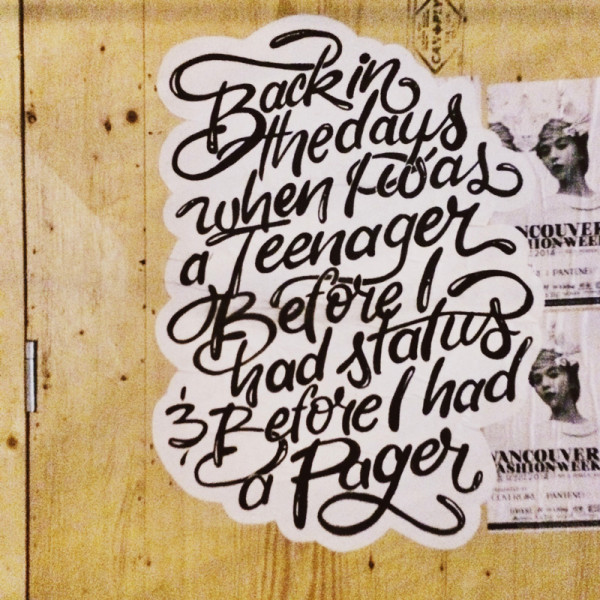 Back in
the days
when I was
a Teenager
Before I
had status
& Before I had
a Pager
CAN PLY
VANCOUVER
FASHION WEEK
PANTENE
VANCOUVER
FASHION WEEK
PANTENE